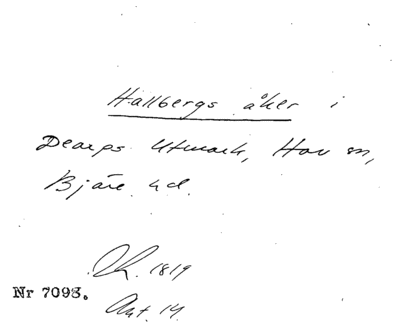 Hallbergs åker i
Dearps Utmark, Hov sn,
Bjäre hd.
LR. 1819
Nr 7093.
Akt. 14.